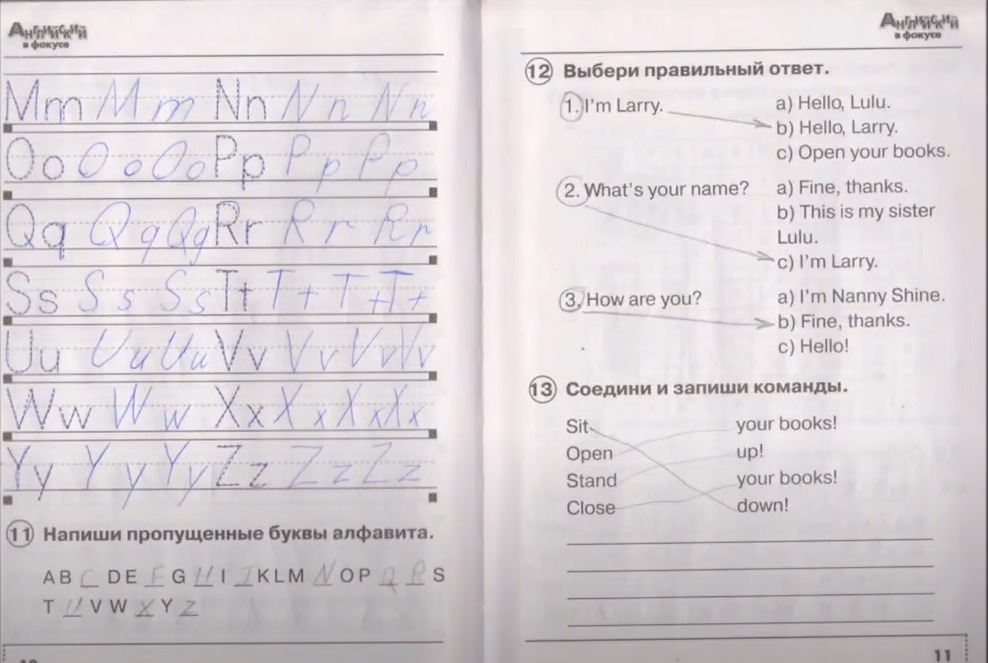 Английский
в фокусе
Mm M m Nn N n N n
Oo O o Oo Pp P p P p
Qq Q q Qq Rr R r R r
Ss S s S s Tt T t T t T t
Uu U u U u Vv V v V v V v
Ww W w W w Xx X x X x X x
Yy Y y Y y Zz Z z Z z
11 Напиши пропущенные буквы алфавита.
A B C D E F G H I J K L M N O P Q R S
T U V W X Y Z
Английский
в фокусе
12 Выбери правильный ответ.
1. I'm Larry. a) Hello, Lulu.
b) Hello, Larry.
c) Open your books.
2. What's your name? a) Fine, thanks.
b) This is my sister
Lulu.
c) I'm Larry.
3. How are you? a) I'm Nanny Shine.
b) Fine, thanks.
c) Hello!
13 Соедини и запиши команды.
Sit your books!
Open up!
Stand your books!
Close down!
11